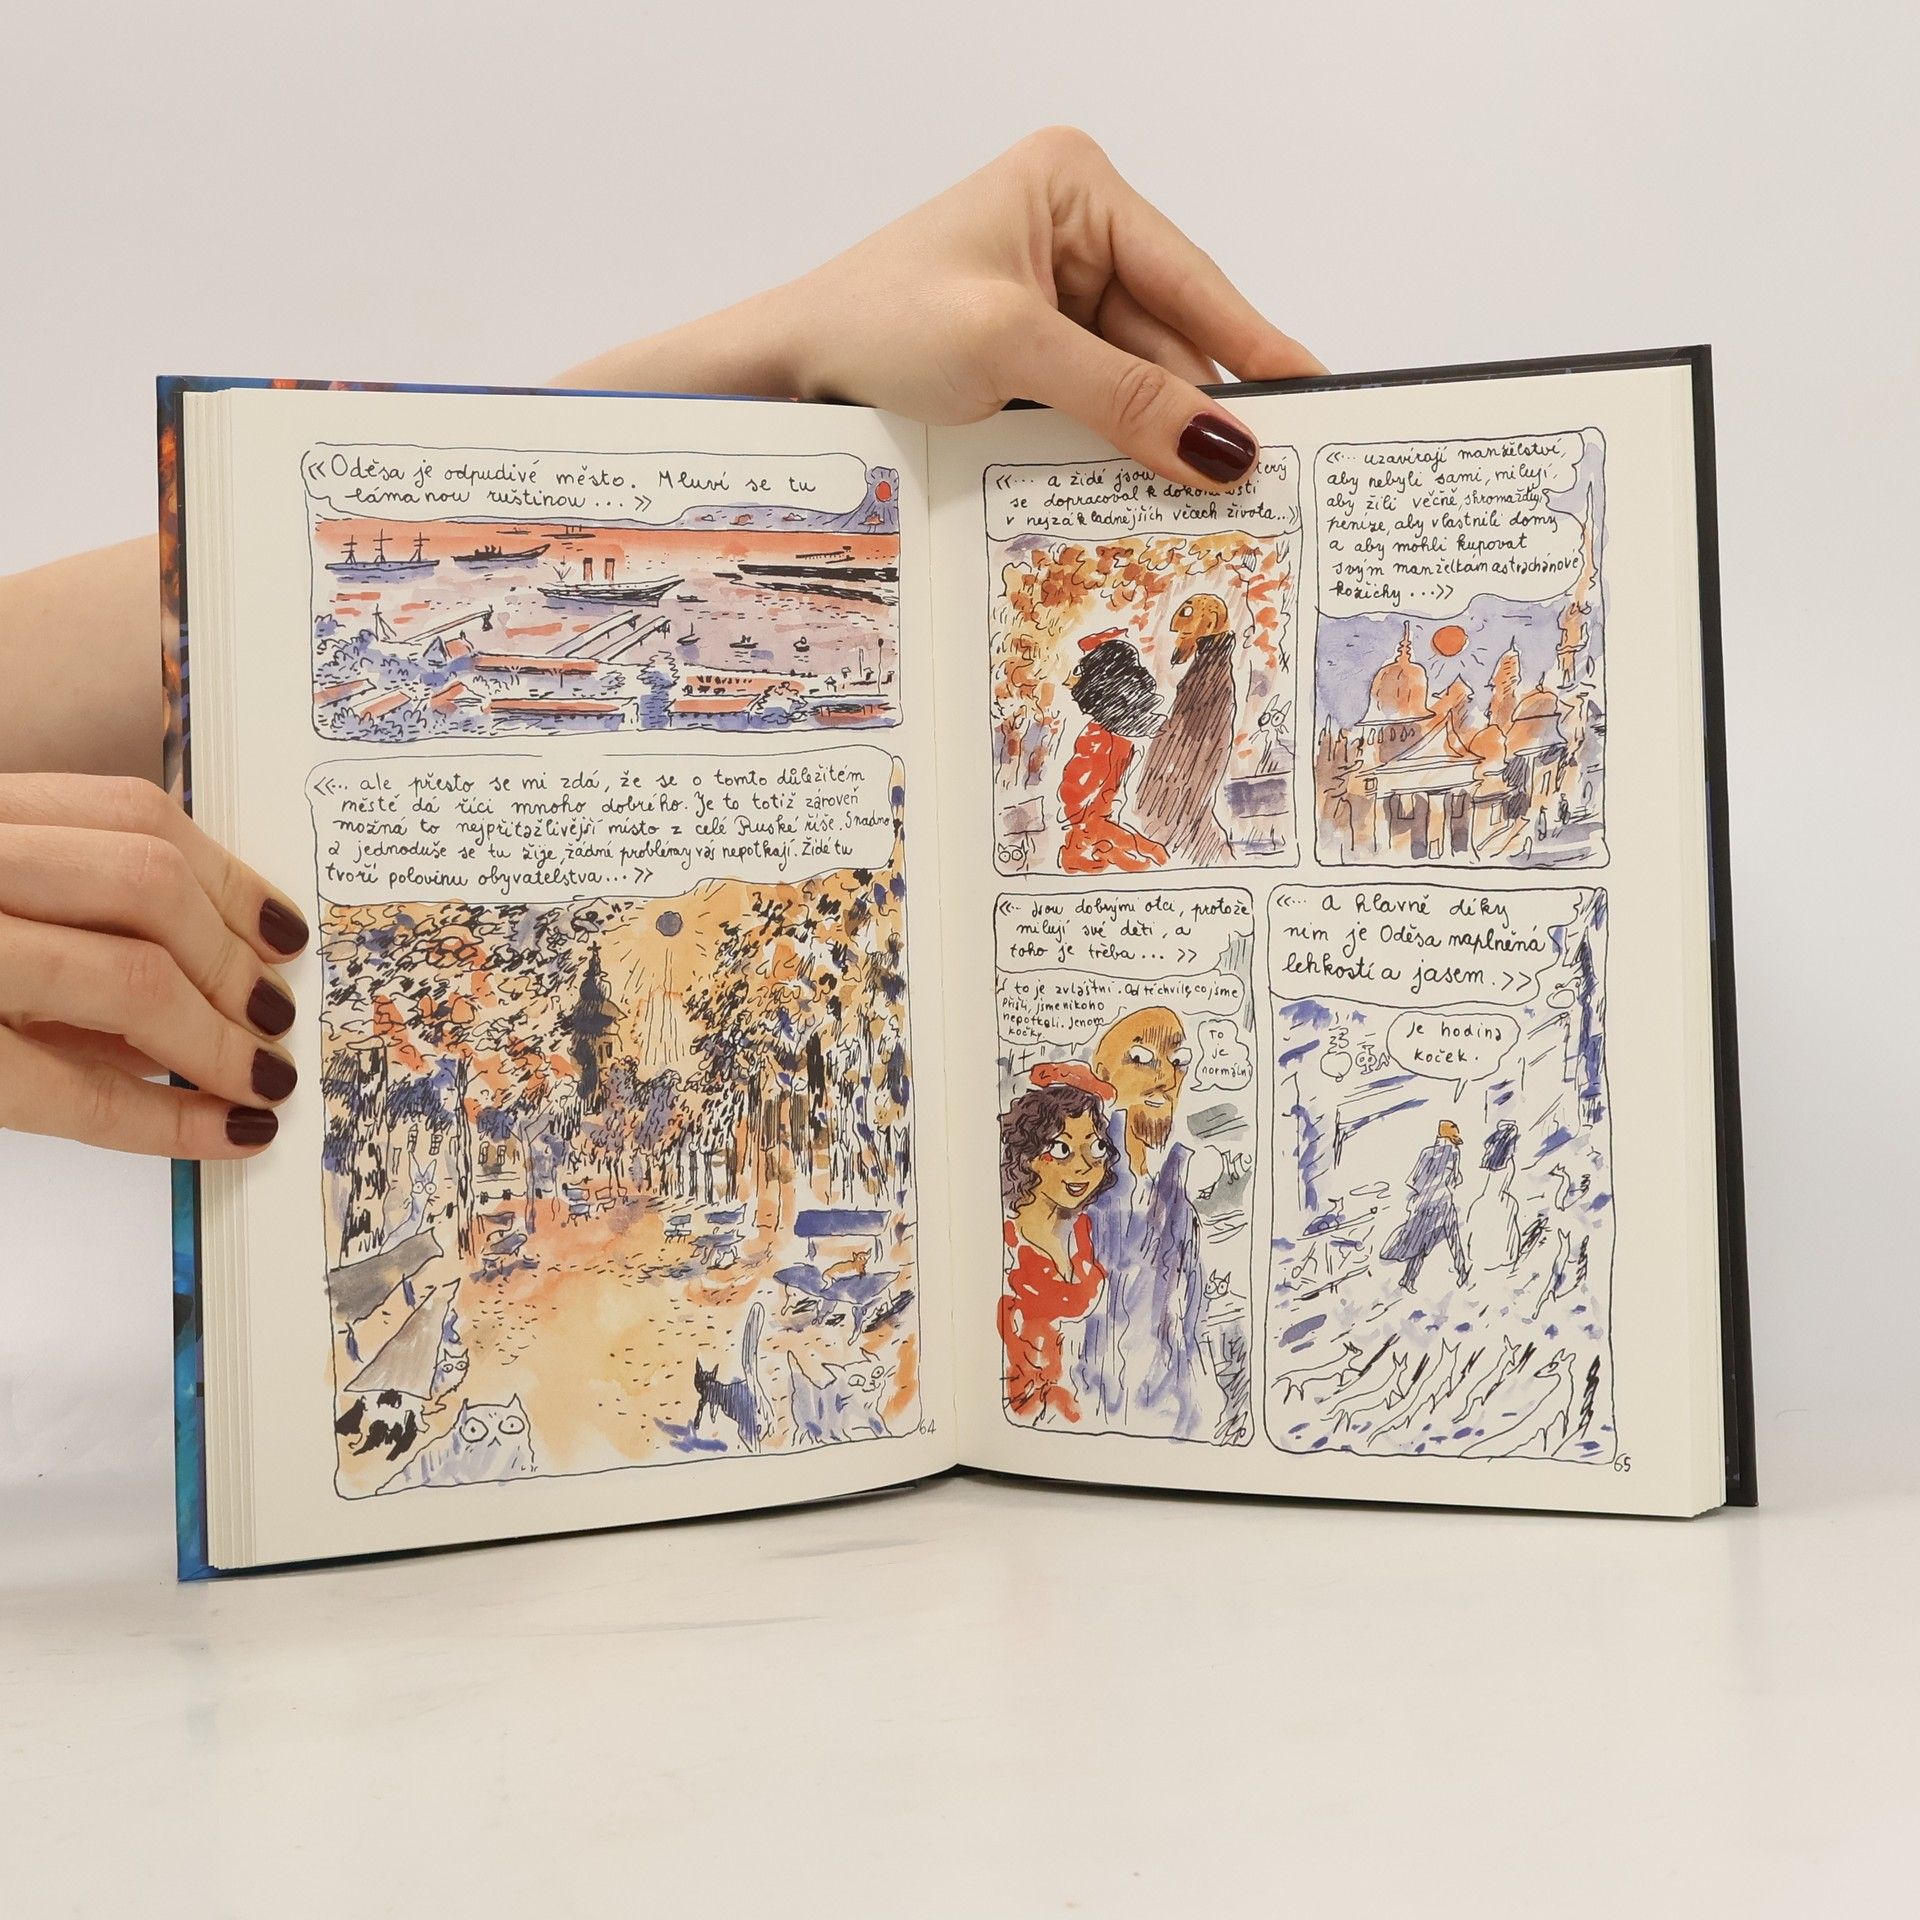 «Oděsa je odpudivé město. Mluví se tu
lámanou ruštinou...»
«... ale přesto se mi zdá, že se o tomto důležitém
městě dá říci mnoho dobrého. Je to totiž zároveň
možná to nejpřitažlivější místo z celé Ruské říše. Snadno
a jednoduše se tu žije, žádné problémy vás nepotkají. Židé tu
tvoří polovinu obyvatelstva...»
64
«... a židé jsou
se dopracoval k
v nejzákladnějších věcech života...»
«... uzavírají manželství,
aby nebyli sami, milují,
aby žili věčně, shromažďují
peníze, aby vlastnili domy
a aby mohli kupovat
svým manželkám astrachánové
kožichy...»
«... Jsou dobrými otci, protože
milují své děti, a
toho je třeba... »
to je zvláštní. Od té chvíle, co jsme
přišli, jsme nikoho
nepotkali. Jenom
kočky.
To
je
normální
«... a hlavně díky
nim je Oděsa naplněná
lehkostí a jasem.»
Je hodina
koček.
65